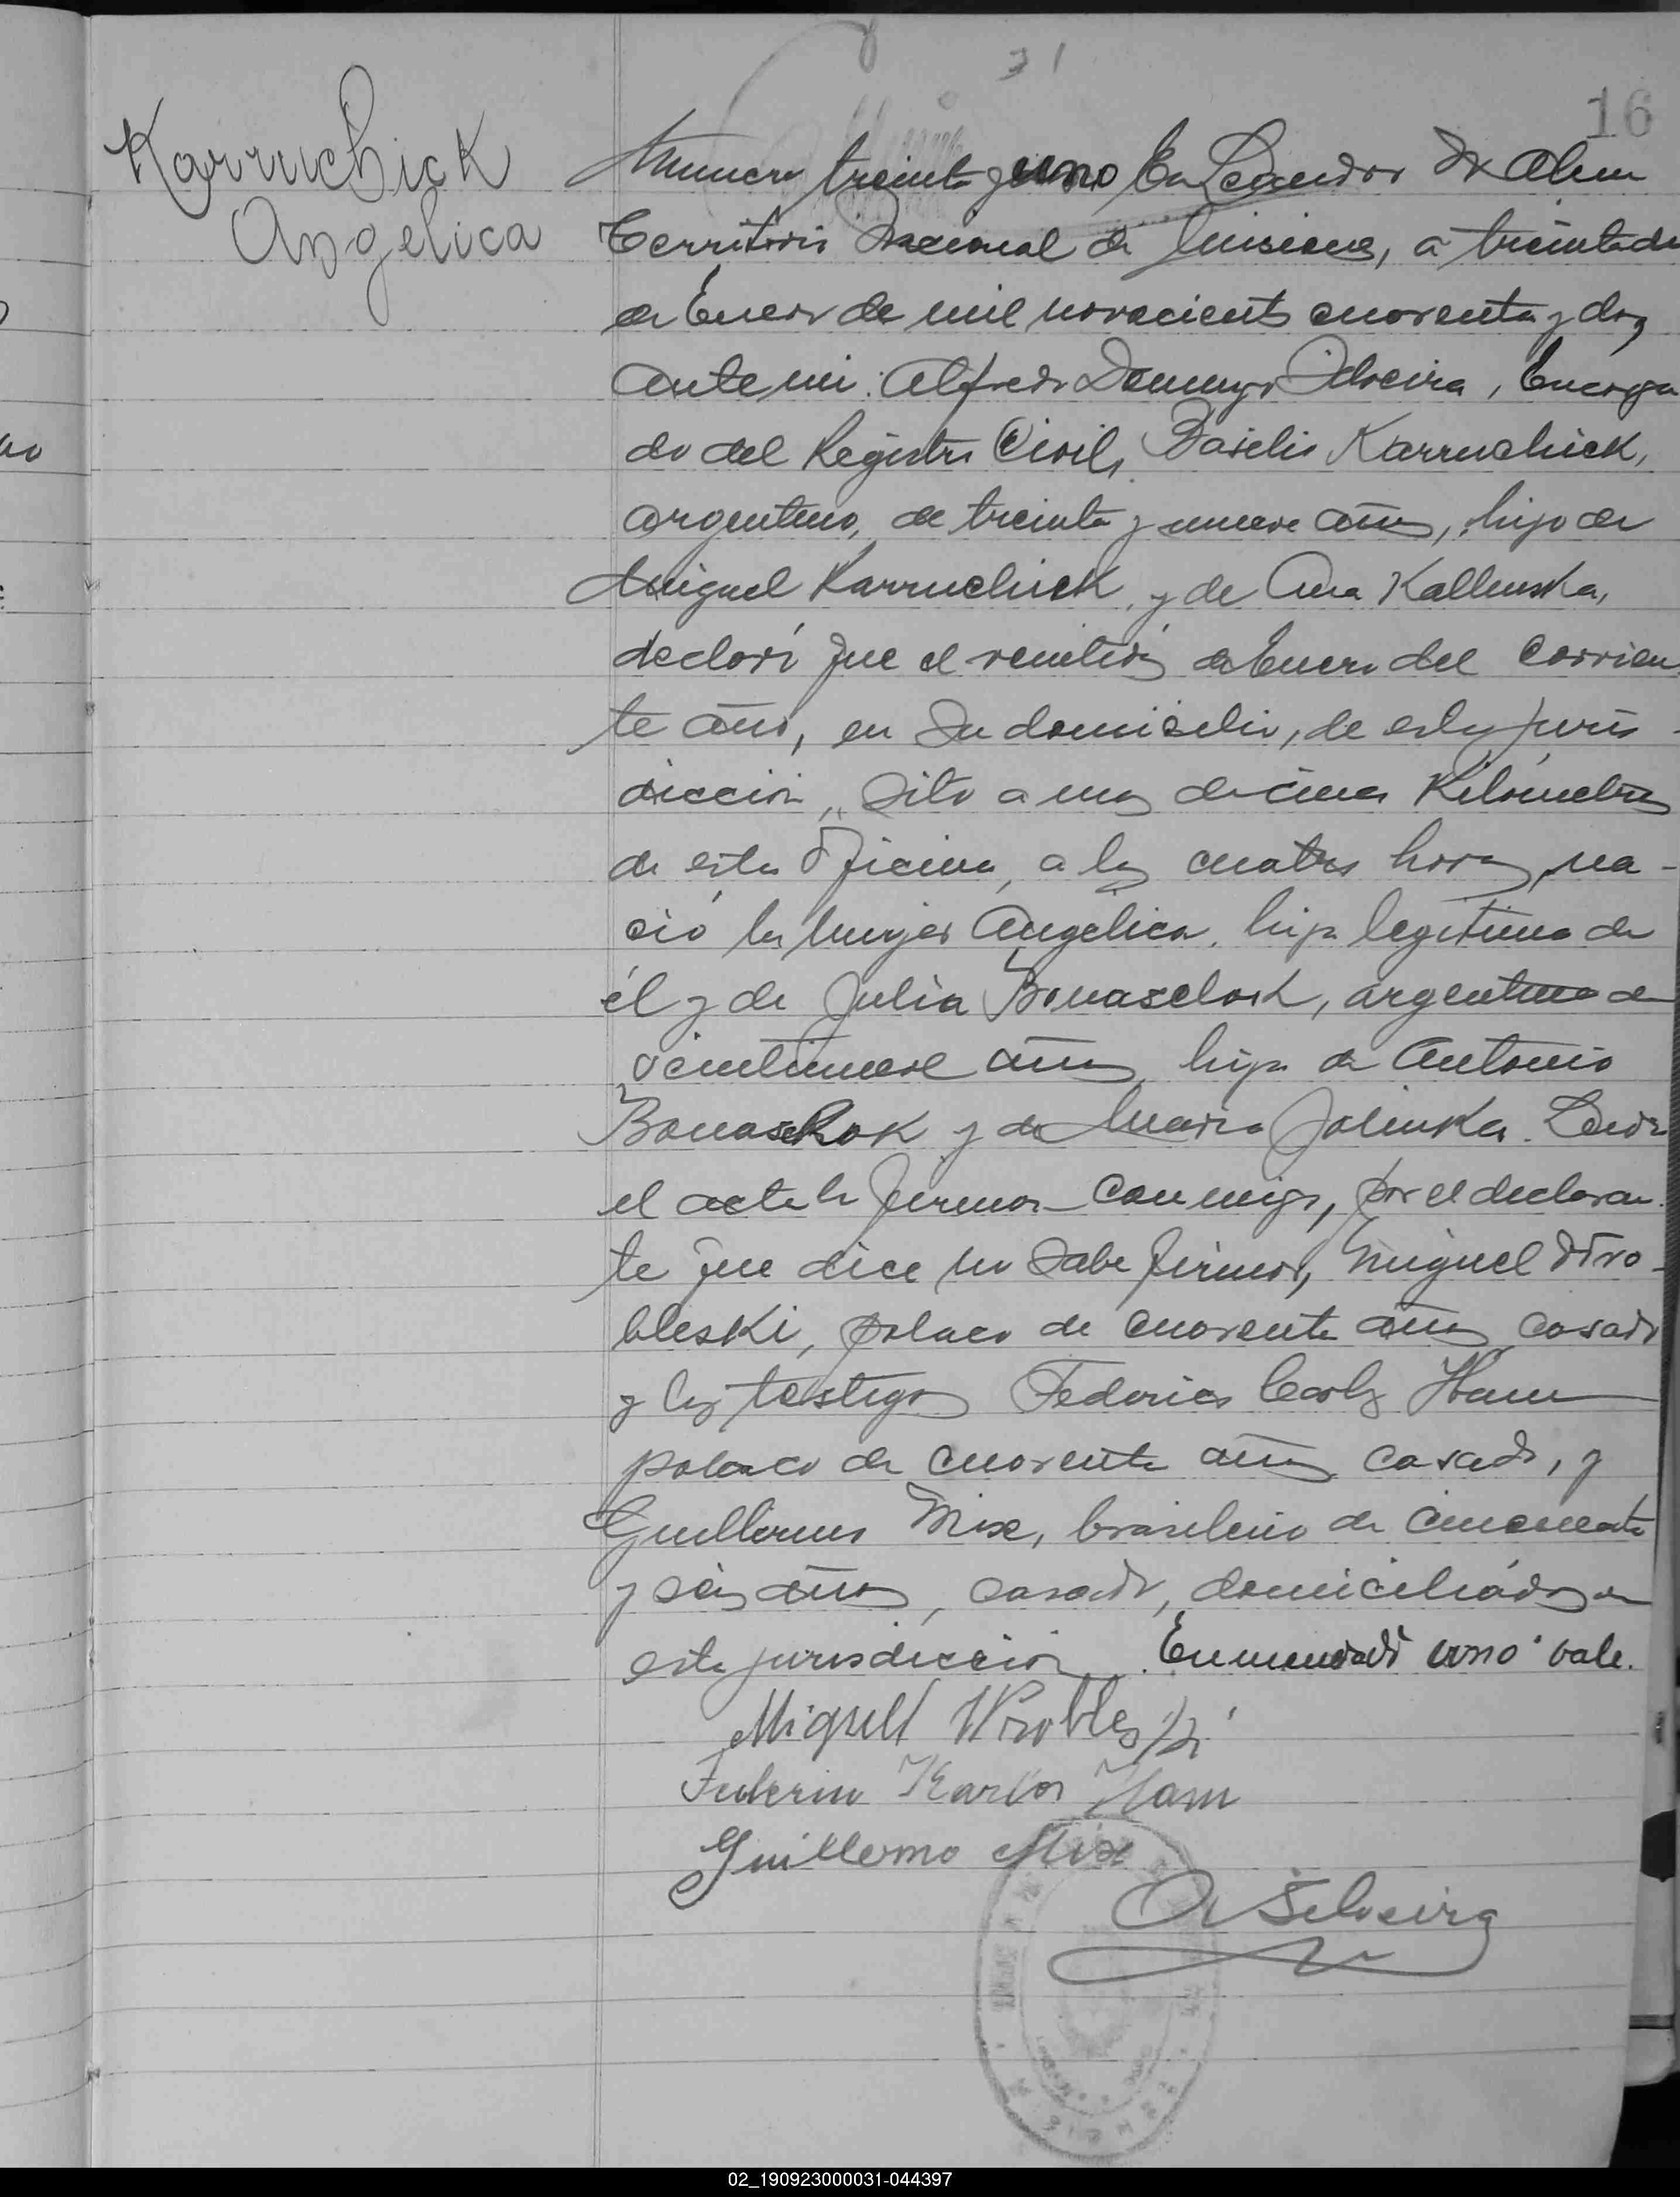 31
16
Karruchick
Angelica
Numero treinta y uno En Leandro N Alem
Territorio Nacional de Misiones, a treinta de
de Enero de mil novecientos cuarenta y dos,
ante mi: Alfredo Domingo Silveira, Encarga
do del Registro Civil, Basilio Karruchick,
argentino, de treinta y nueve años, hijo de
Miguel Karruchick, y de Ana Kallenska,
declaró que el veintidós de Enero del corrien
te año, en su domisilio, de esta juris-
dicción, sito a unos de cinco Kilómetros
de esta Oficina, a las cuatro horas, na-
ció la mujer Angélica, hija legítima de
él y de Julia Bonaschok, argentina de
veintinueve años hija de Antonio
Bonaschok y de Maria Jalinska. Leida
el acta la firmó conmigo, por el declaran
te que dice no sabe firmar, Miguel Wro-
bleski, polaco de cuarenta años casado
y los testigos Federico Carlos Ham
polaco de cuarenta años casado, y
Guillermo Mix, brasileño de cincuenta
y seis años, casado, domiciliados en
esta jurisdicción. Enmendado uno vale.
Miguell Wrobleski
Federico Karlos Ham
Guillermo Mix
A Silveira
02_190923000031-044397